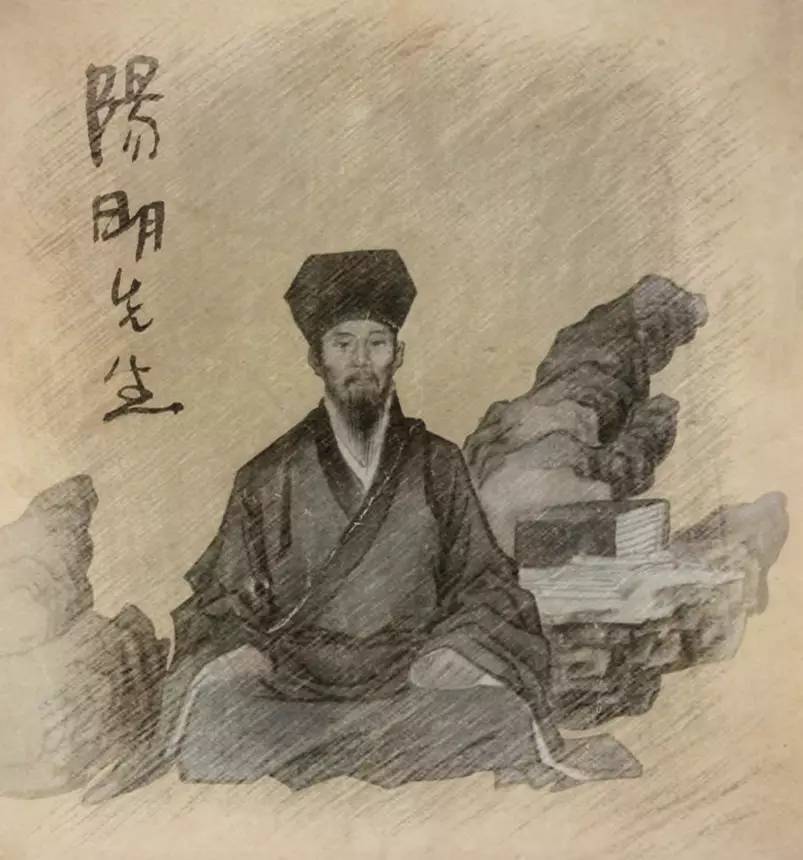 陽明先生